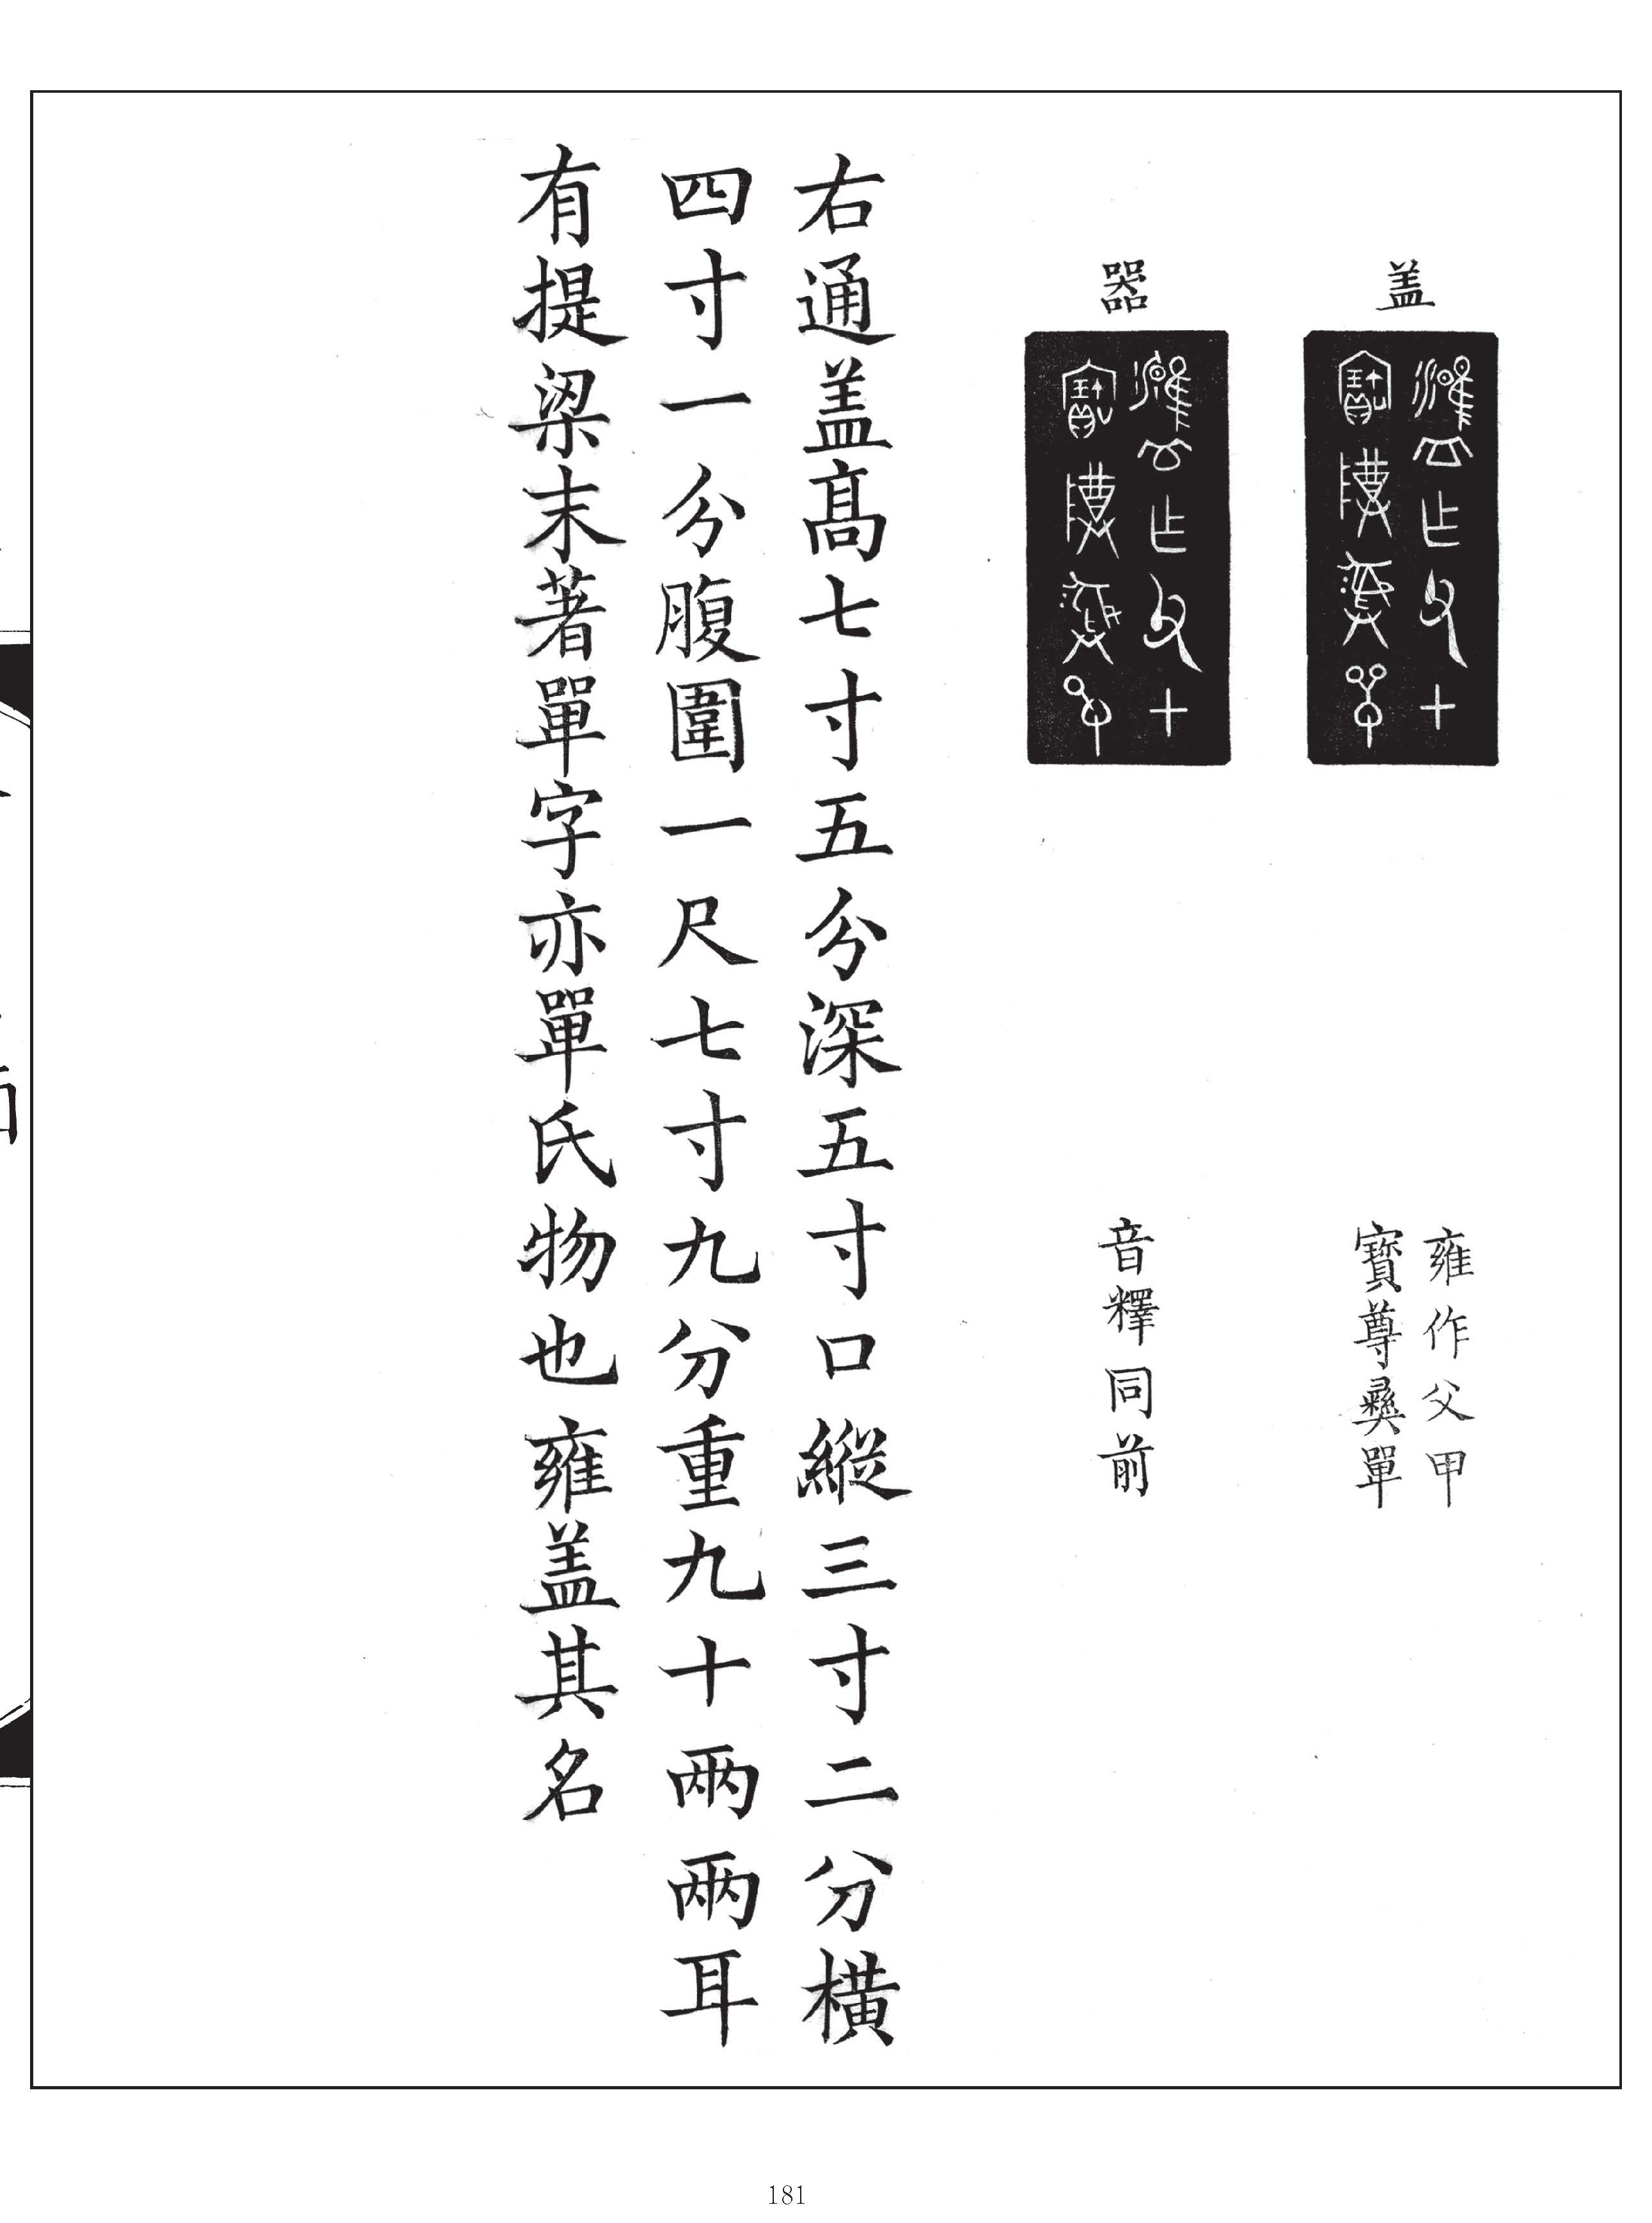 盖
雍作父甲
寶尊彝單
器
音釋同前
右通盖髙七寸五分深五寸口縱三寸二分橫
四寸一分腹圍一尺七寸九分重九十兩兩耳
有提梁末著單字亦單氏物也雍盖其名
181